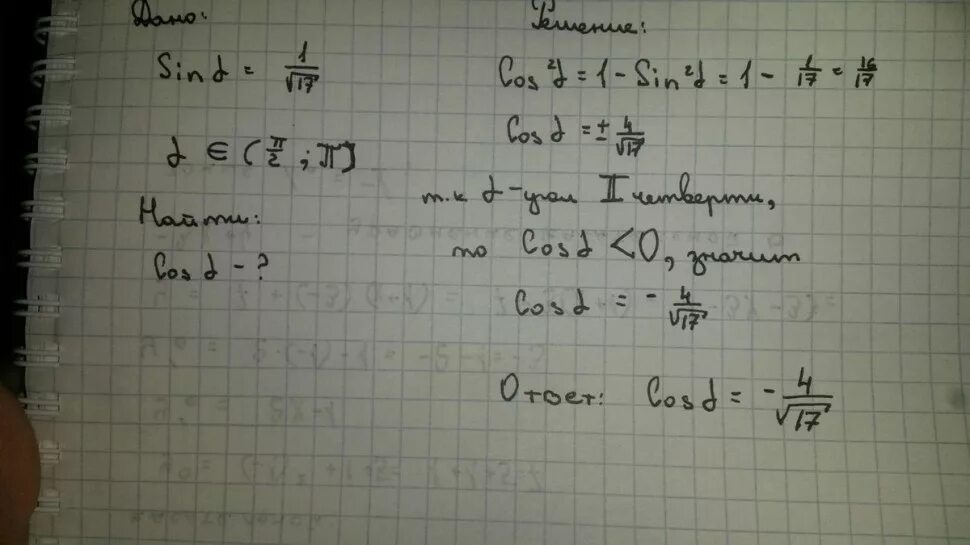 Дано:
Sin α = 1/√17
α ∈ (π/2 ; π]
Найти:
Cos α - ?
Решение:
Cos²α = 1 - Sin²α = 1 - 1/17 = 16/17
Cos α = ± 4/√17
т.к α - угол II четверти,
то Cos α < 0, значит
Cos α = - 4/√17
Ответ: Cos α = - 4/√17